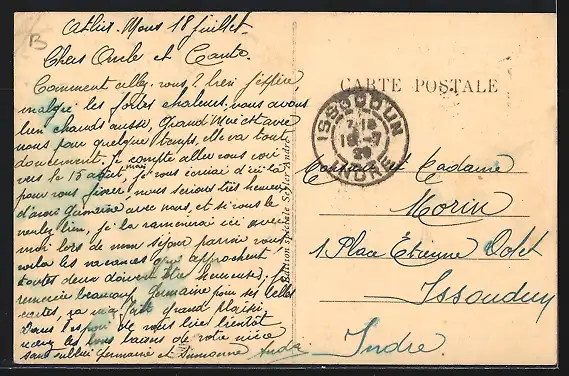 Athis-Mons 18 juillet.
Chers Oncle et Tante.
Comment allez-vous? bien j'espère
malgré les fortes chaleurs, nous avons
bien chauds aussi, Grand Mère est avec
nous pour quelques temps, elle va tout
doucement. Je compte aller vous voir
vers le 15 août mais je vous écrirai d'ici là
pour vous fixer, nous serions très heureux
d'avoir Germaine avec nous, et si vous le
voulez bien, je la ramènerai ici avec
moi lors de mon séjour parmi vous.
voilà les vacances qui approchent,
toutes deux doivent être heureuses, je
remercie beaucoup Germaine pour ses belles
cartes, ça m'a fait grand plaisir,
Dans l'espoir de vous lire bientôt
recevez les bons baisers de votre nièce
sans oublier Germaine et Simonne
B
Edition spéciale Sellier André
CARTE POSTALE
ISSOUDUN
INDRE
Monsieur et Madame
Morin
1 Place Étienne Dolet
Issoudun
Indre